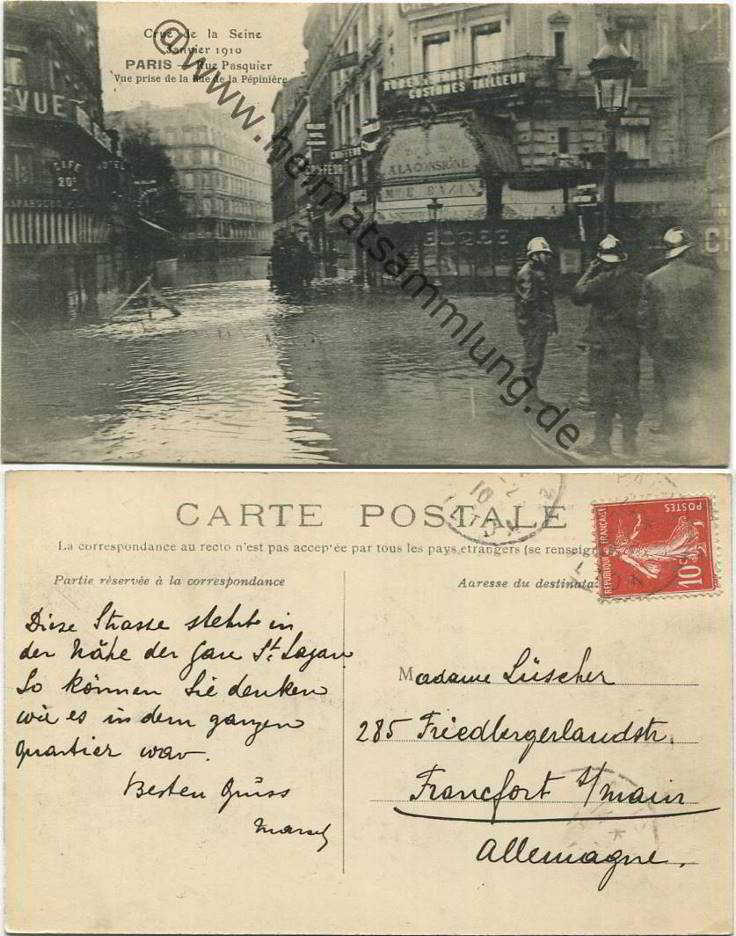 Crue de la Seine
Janvier 1910
PARIS — Rue Pasquier
Vue prise de la Rue de la Pépinière
© www.heimatsammlung.de
REVUE
CAFÉ
HOTEL
20c
COSTUMES TAILLEUR
COIFFEUR
A LA CONSIGNE
CARTE POSTALE
La correspondance au recto n'est pas acceptée par tous les pays étrangers (se renseign
Partie réservée à la correspondance
Adresse du destinata
POSTES
REPUBLIQUE FRANÇAISE
10c
Diese Strasse steht in
der Nähe der Gare St. Lazare
So können Sie denken
wie es in dem ganzen
quartier war.
Besten Gruss
Marcel
Madame Lüscher
285 Friedbergerlandstr.
Francfort s/main
Allemagne.